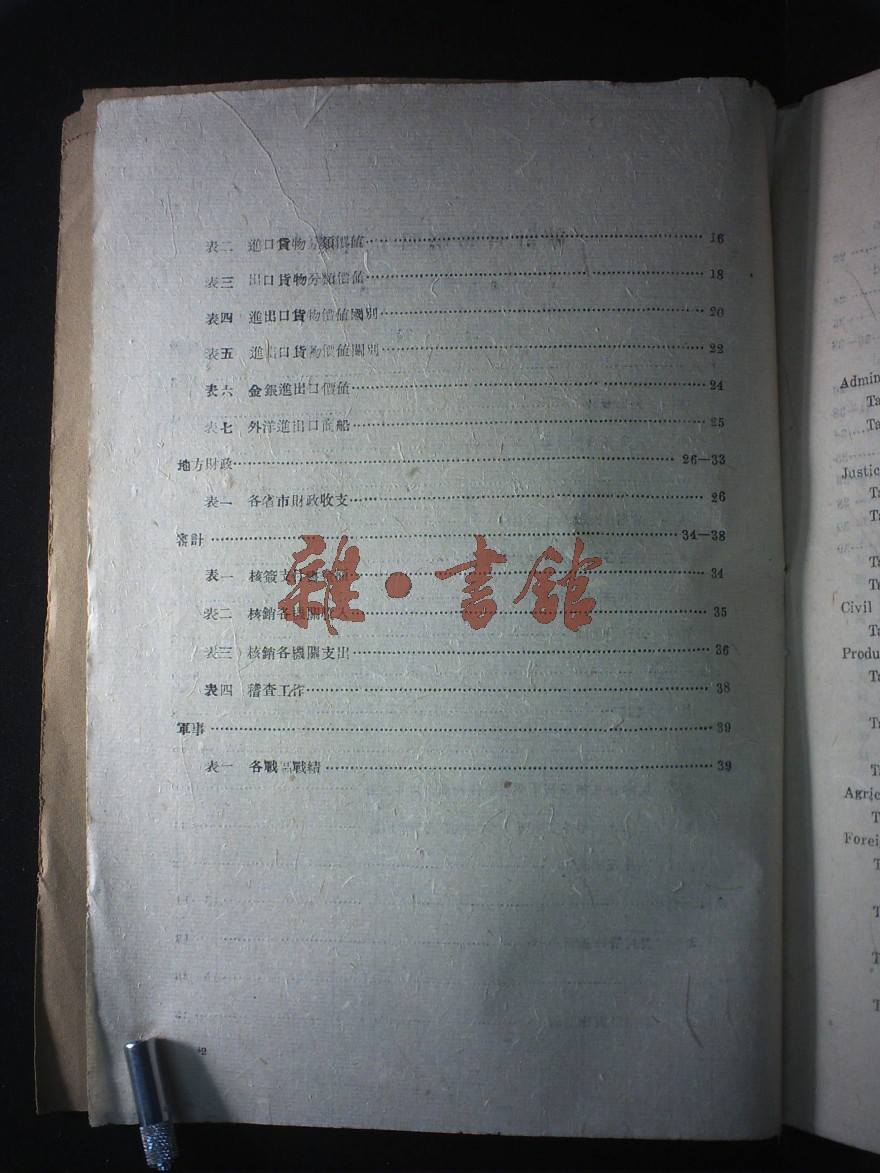 表二 進口貨物分類價值 16
表三 出口貨物分類價值 18
表四 進出口貨物價值國別 20
表五 進出口貨物價值關別 22
表六 金銀進出口價值 24
表七 外洋進出口商船 25
地方財政 26—33
表一 各省市財政收支 26
審計 34—38
表一 核簽支付 34
表二 核銷各機關收入 35
表三 核銷各機關支出 36
表四 稽查工作 38
軍事 39
表一 各戰區戰績 39
雜·書館
Admin
Ta
Ta
Justic
Ta
Ta
Ta
Ta
Civil
Ta
Produ
Ta
Ta
Ta
Agric
T
Forei
T
T
T
T